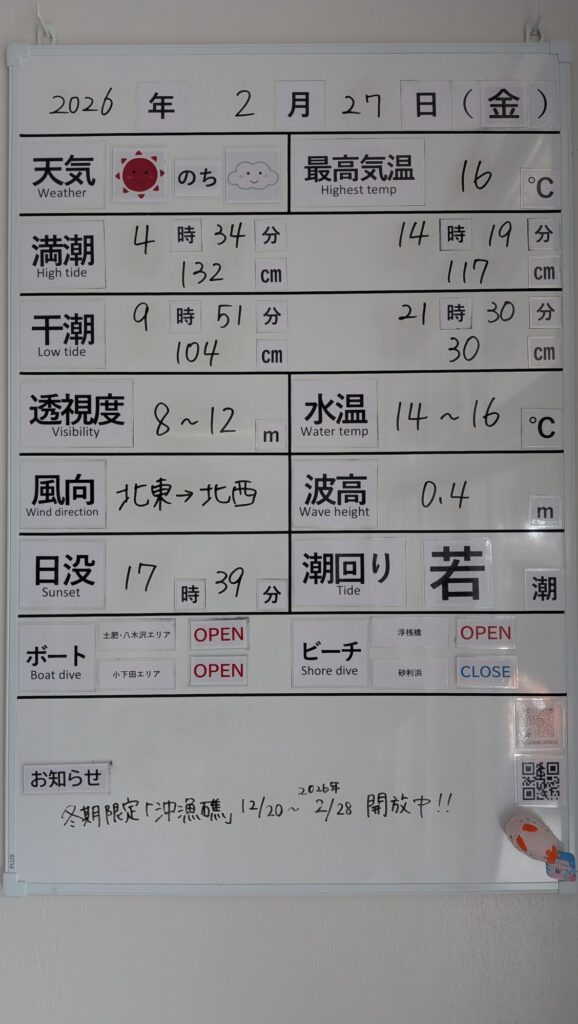 2026 年 2 月 27 日 (金)
天気 のち 最高気温 16 ℃
Weather Highest temp
満潮 4 時 34 分 14 時 19 分
High tide 132 cm 117 cm
干潮 9 時 51 分 21 時 30 分
Low tide 104 cm 30 cm
透視度 8～12 m 水温 14～16 ℃
Visibility Water temp
風向 北東→北西 波高 0.4 m
Wind direction Wave height
日没 17 時 39 分 潮回り 若 潮
Sunset Tide
ボート 土肥・八木沢エリア OPEN ビーチ 浮桟橋 OPEN
Boat dive 小下田エリア OPEN Shore dive 砂利浜 CLOSE
お知らせ
冬期限定「沖漁礁」12/20～2026年2/28 開放中!!
PLUS